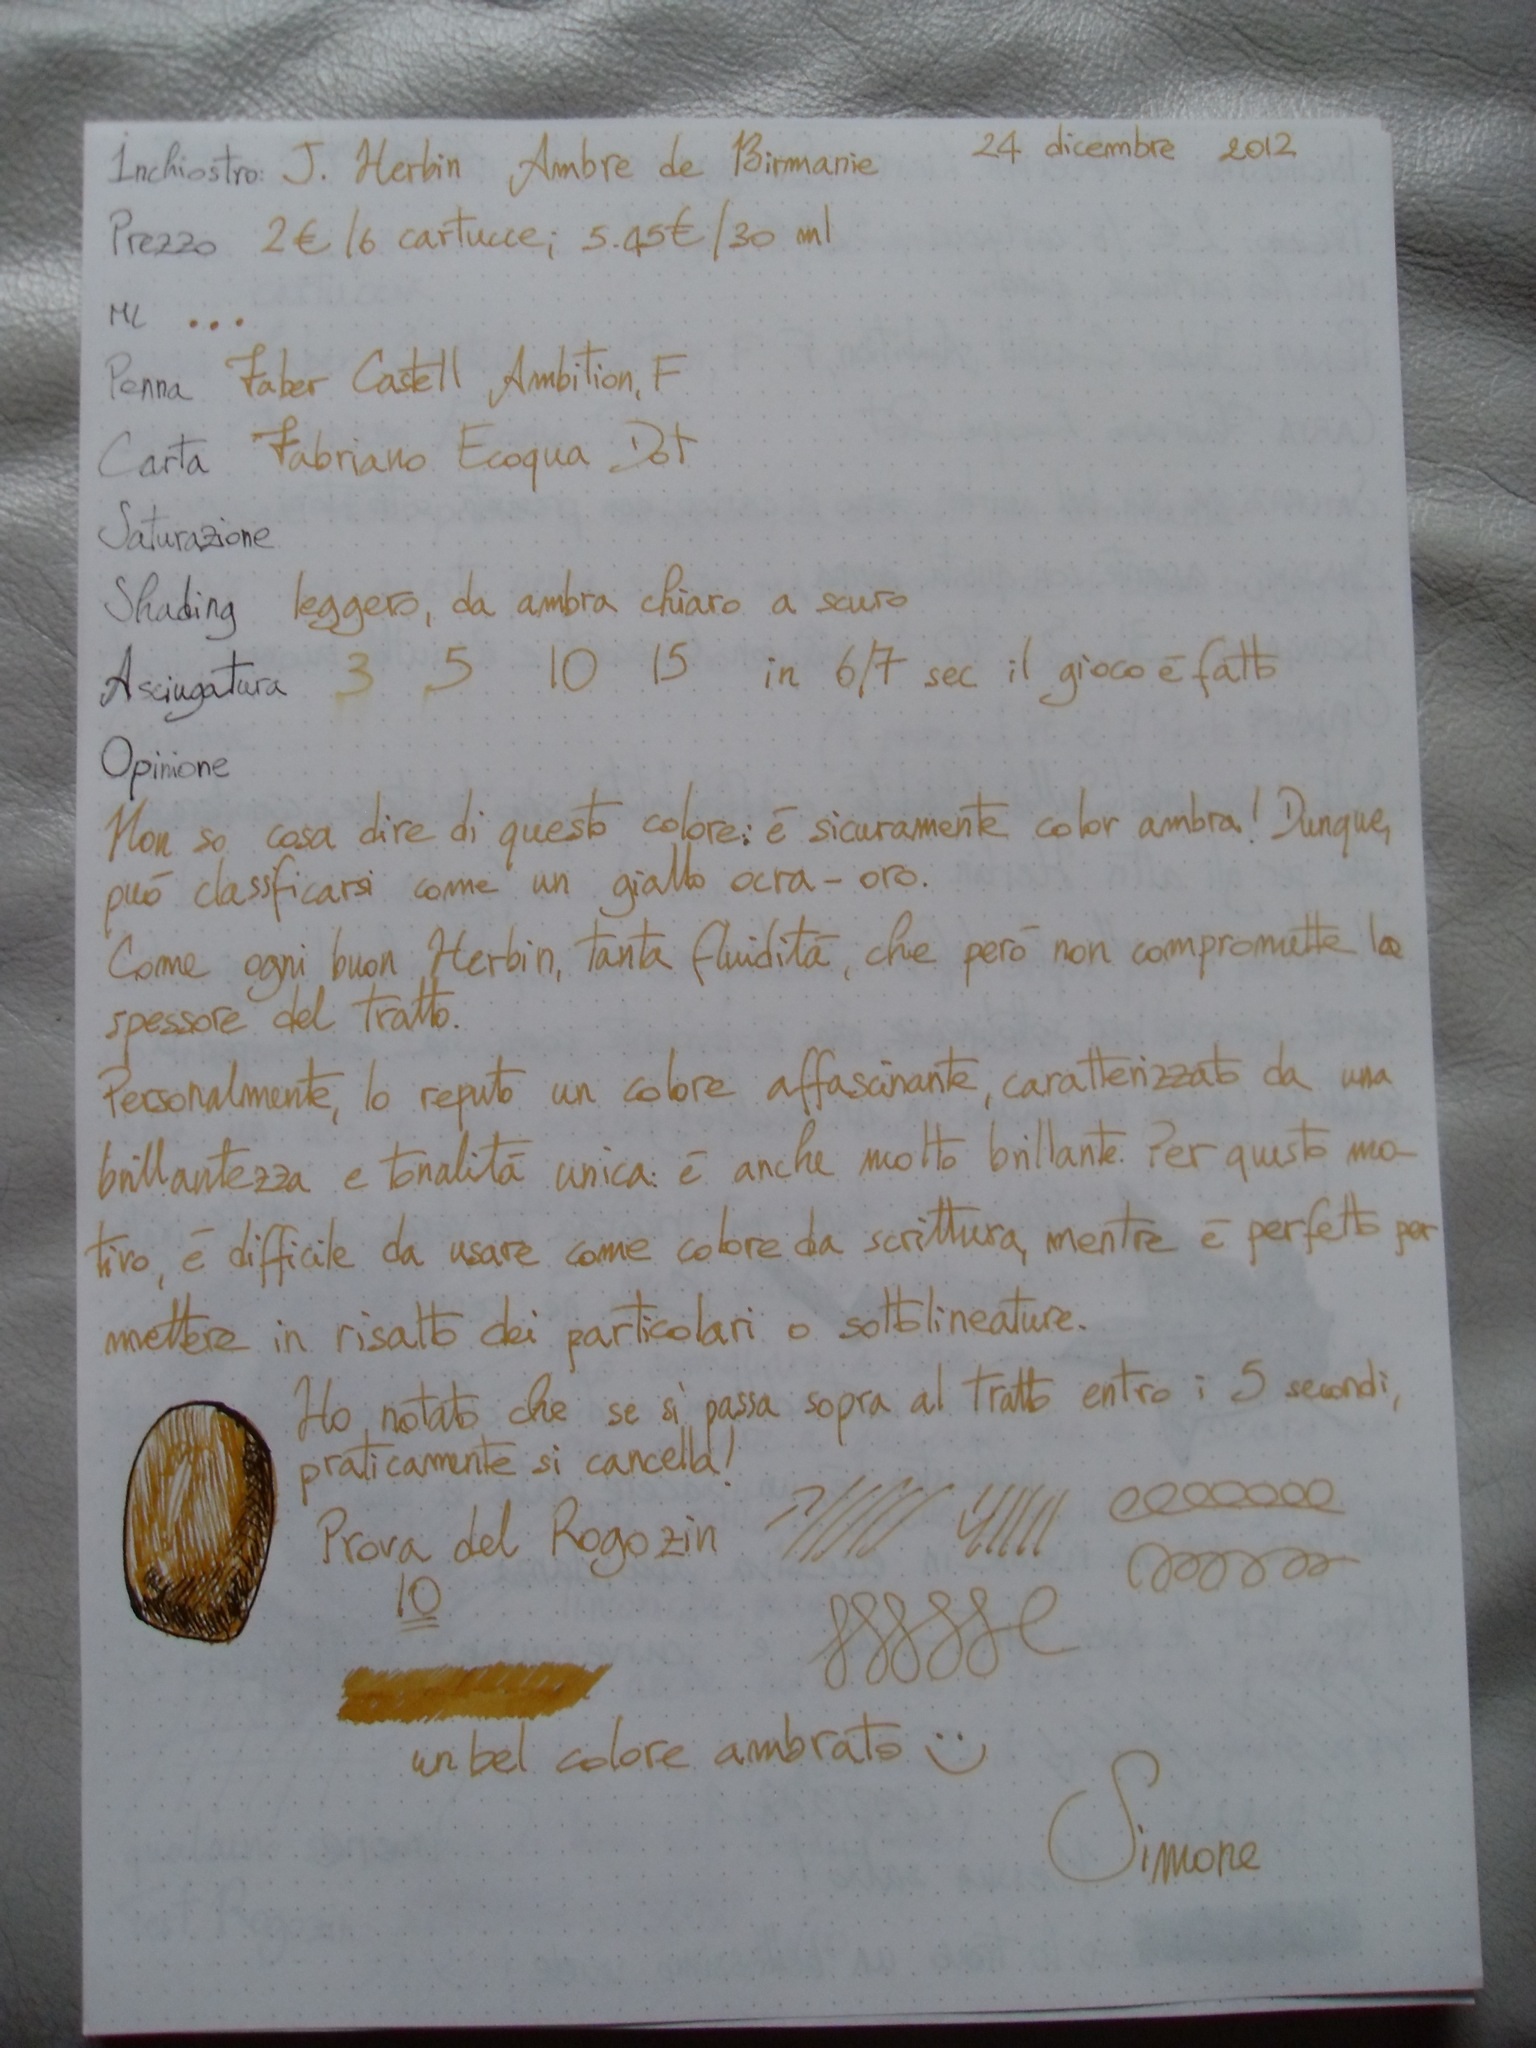 Inchiostro: J. Herbin Ambre de Birmanie 24 dicembre 2012
Prezzo 2€/6 cartucce; 5.45€/30 ml
ML ...
Penna Faber Castell Ambition, F
Carta Fabriano Ecoqua Dot
Saturazione
Shading leggero, da ambra chiaro a scuro
Asciugatura 3 5 10 15 in 6/7 sec il gioco é fatto
Opinione
Non so cosa dire di questo colore: é sicuramente color ambra! Dunque,
puó classificarsi come un giallo ocra-oro.
Come ogni buon Herbin, tanta fluiditá, che peró non compromette lo
spessore del tratto.
Personalmente, lo reputo un colore affascinante, caratterizzato da una
brillantezza e tonalitá unica: é anche molto brillante. Per questo mo-
tivo, é difficile da usare come colore da scrittura, mentre é perfetto per
mettere in risalto dei particolari o sottolineature.
Ho notato che se si passa sopra al tratto entro i 5 secondi,
praticamente si cancella!
Prova del Rogozin
10
un bel colore ambrato :)
Simone